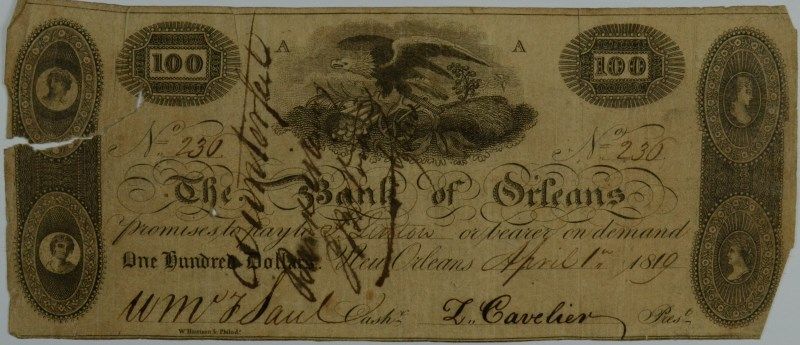 A A
100 100
No. 230. No. 230.
The Bank of Orleans
promises to pay to or bearer on demand
One Hundred Dollars. New Orleans April 1st 1819
Wm. Saul Cashr. Z. Cavelier Prest.
W Harrison Sc Philada
Counterfeit